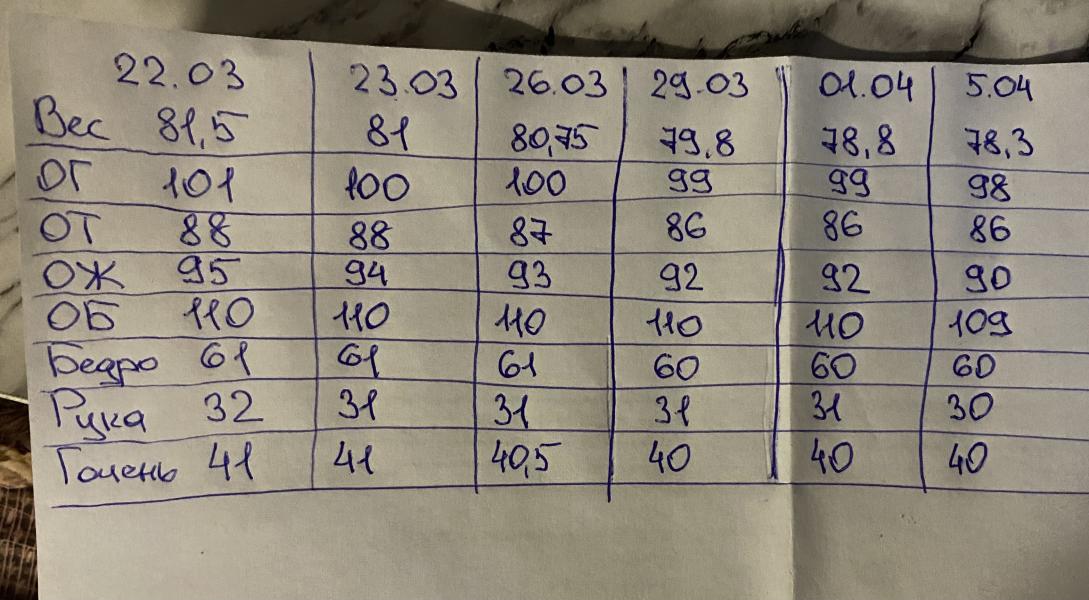 22.03 23.03 26.03 29.03 01.04 5.04
Вес 81,5 81 80,75 79,8 78,8 78,3
ОГ 101 100 100 99 99 98
ОТ 88 88 87 86 86 86
ОЖ 95 94 93 92 92 90
ОБ 110 110 110 110 110 109
Бедро 61 61 61 60 60 60
Рука 32 31 31 31 31 30
Голень 41 41 40,5 40 40 40